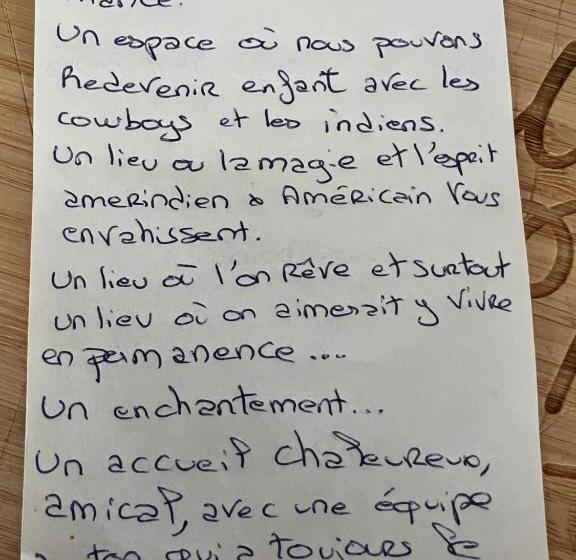 un espace où nous pouvons
Redevenir enfant avec les
cowboys et les indiens.
Un lieu ou la magie et l'esprit
amerindien & Américain vous
envahissent.
Un lieu où l'on Rêve et surtout
un lieu où on aimerait y vivre
en permanence ....
Un enchantement...
Un accueil chaleureux,
amical, avec une équipe
qui a toujours le